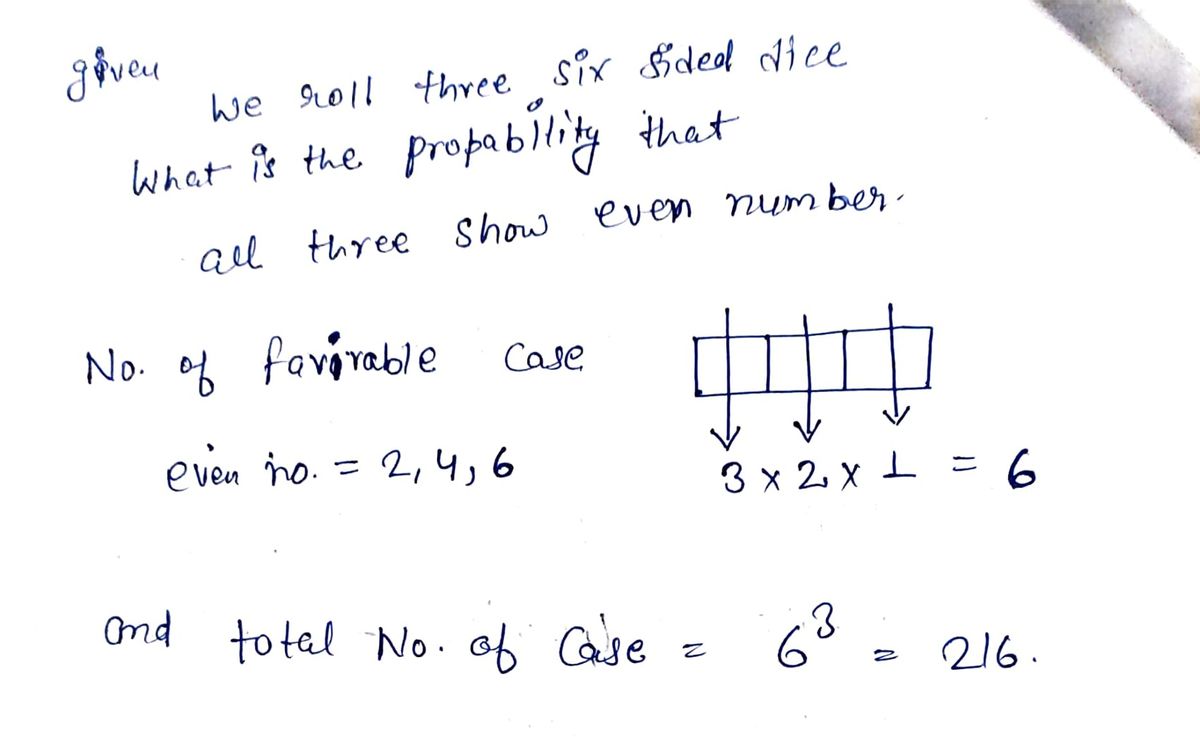 given
We roll three six sided dice
What is the propability that
all three show even number.
No. of favorable case
even no. = 2, 4, 6
3 x 2 x 1 = 6
and total No. of Case = 6³ = 216.